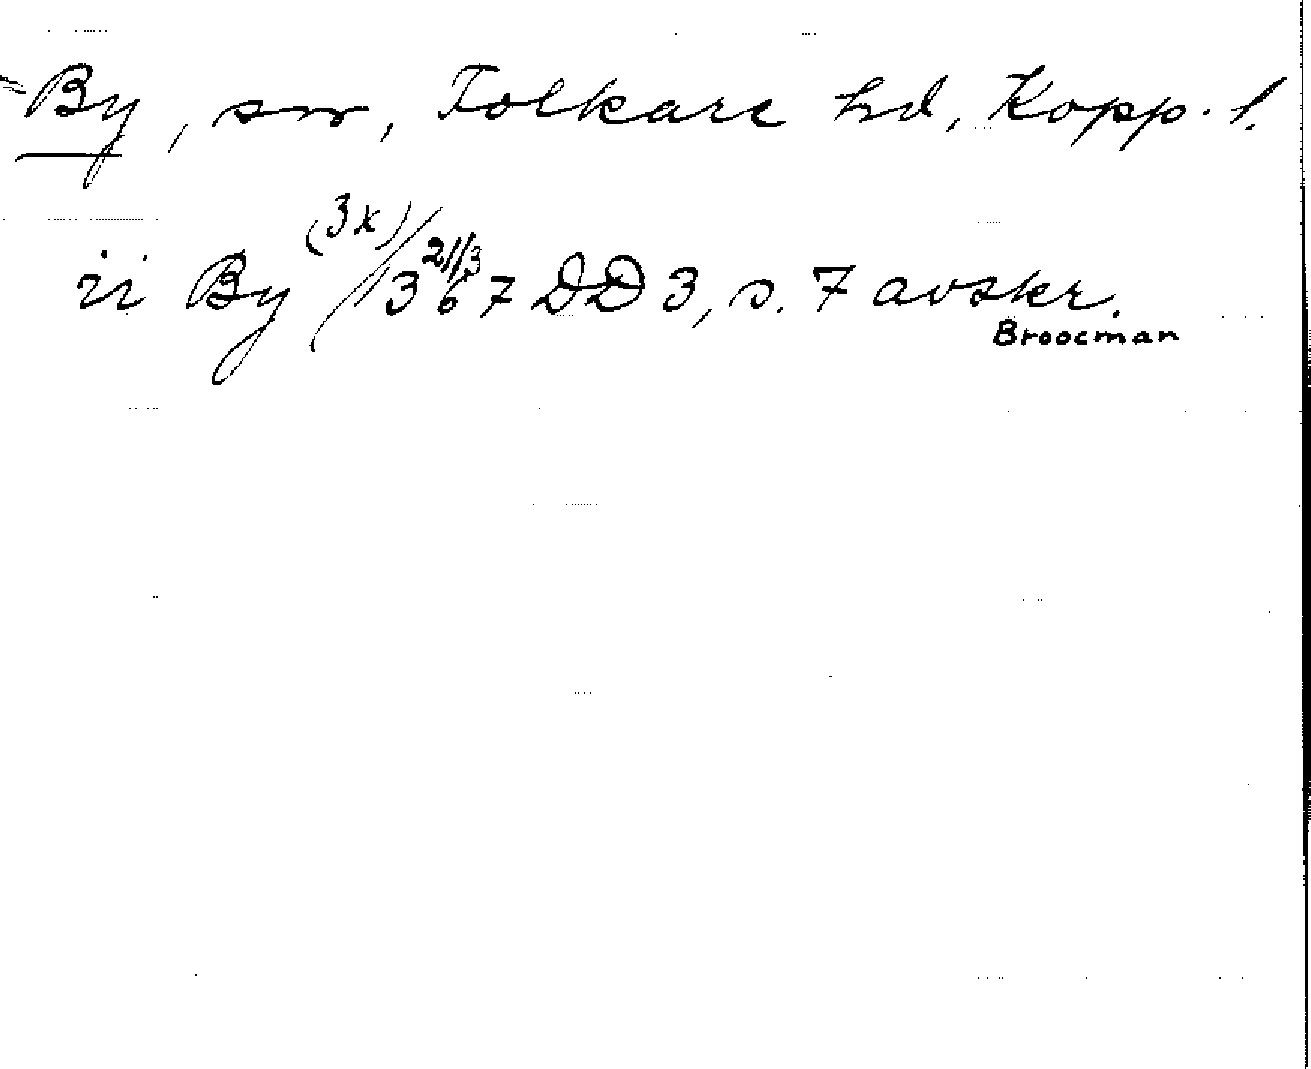 By, sn, Folkare hd, Kopp. l.
ii By (3x) 1367 21/3 DD 3, s. 7 avskr.
Broocman